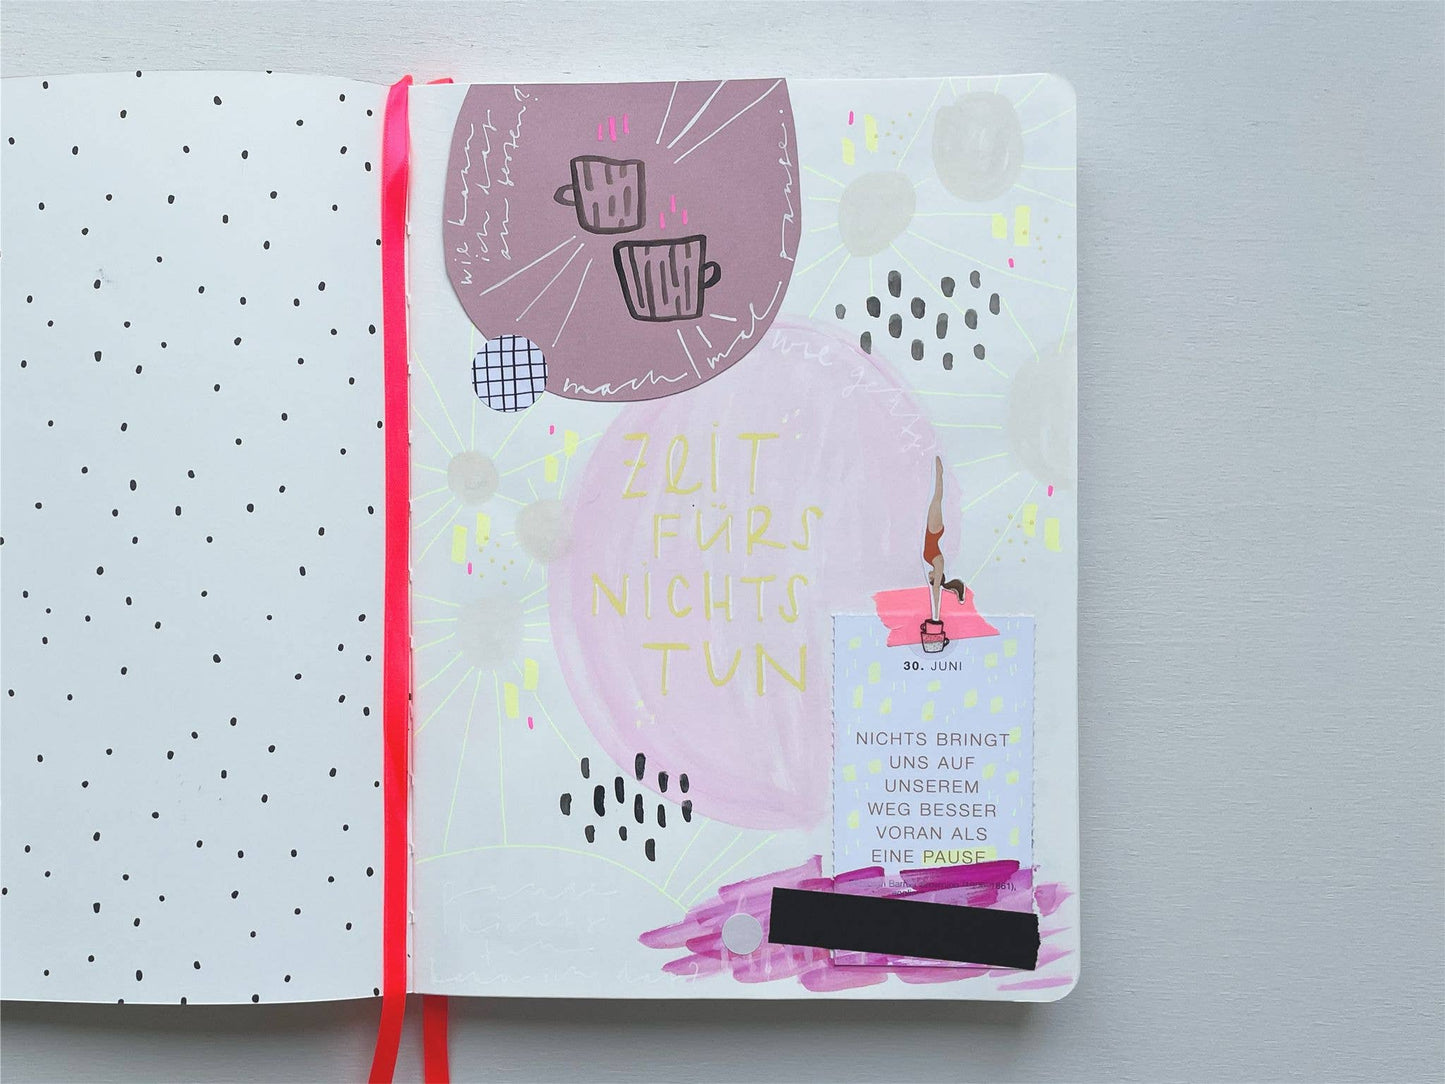 wie kann
ich das
am besten?
mach mal pause.
wie geht's
ZEIT
FÜRS
NICHTS
TUN
30. JUNI
NICHTS BRINGT
UNS AUF
UNSEREM
WEG BESSER
VORAN ALS
EINE PAUSE